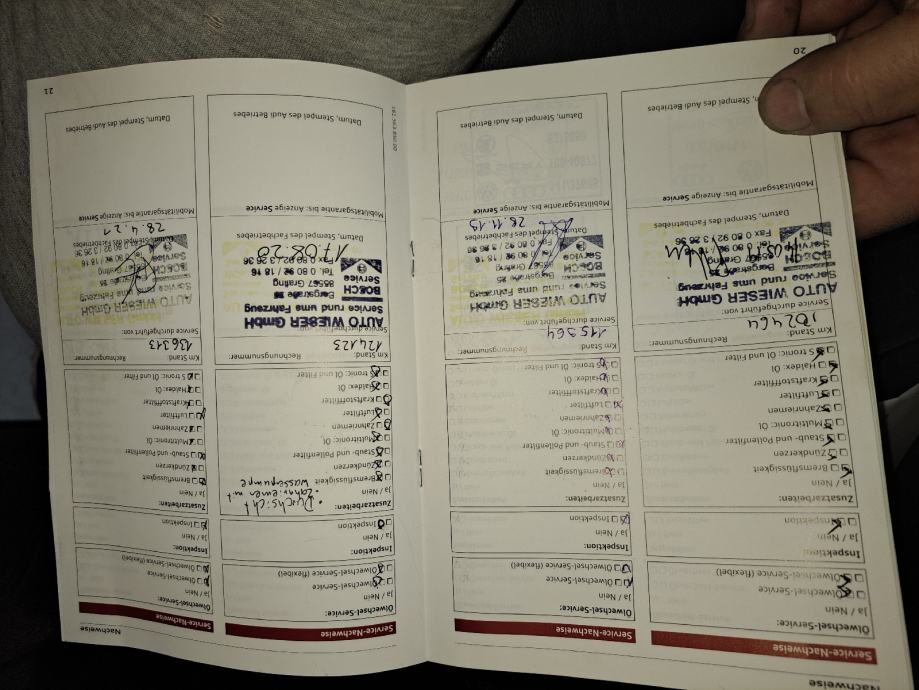 Nachweise
Service-Nachweise
Ölwechsel-Service:
Ja / Nein
Ölwechsel-Service
Ölwechsel-Service (flexibel)
Inspektion:
Ja / Nein
Inspektion
Zusatzarbeiten:
Ja / Nein
Bremsflüssigkeit
Zündkerzen
Staub- und Pollenfilter
Multitronic: Öl
Zahnriemen
Luftfilter
Kraftstofffilter
Haldex: Öl
S tronic: Öl und Filter
Km Stand: Rechnungsnummer:
102464
Service durchgeführt von:
AUTO WIESER GmbH
Service rund ums Fahrzeug
BOSCH
Service
Bergstraße
85567 Grafing
Tel. 0 80 92
Fax 0 80 92 / 3 26 36
Datum, Stempel des Fachbetriebes
Mobilitätsgarantie bis: Anzeige Service
Datum, Stempel des Audi Betriebes
20
Service-Nachweise
Ölwechsel-Service:
Ja / Nein
Ölwechsel-Service
Ölwechsel-Service (flexibel)
Inspektion:
Ja / Nein
Inspektion
Zusatzarbeiten:
Ja / Nein
Bremsflüssigkeit
Zündkerzen
Staub- und Pollenfilter
Multitronic: Öl
Zahnriemen
Luftfilter
Kraftstofffilter
Haldex: Öl
S tronic: Öl und Filter
Km Stand: Rechnungsnummer:
115364
Service durchgeführt von:
AUTO WIESER GmbH
Service rund ums Fahrzeug
BOSCH
Service
Bergstraße
85567 Grafing
Tel. 0 80 92 / 18 16
Fax 0 80 92 / 3 26 36
Datum, Stempel des Fachbetriebes
28.11.19
Mobilitätsgarantie bis: Anzeige Service
Datum, Stempel des Audi Betriebes
Nachweise
Service-Nachweise
Ölwechsel-Service:
Ja / Nein
Ölwechsel-Service
Ölwechsel-Service (flexibel)
Inspektion:
Ja / Nein
Inspektion
Zusatzarbeiten:
Ja / Nein
• Durchsicht
• Zahnriemen mit
Wasserpumpe
Bremsflüssigkeit
Zündkerzen
Staub- und Pollenfilter
Multitronic: Öl
Zahnriemen
Luftfilter
Kraftstofffilter
Haldex: Öl
S tronic: Öl und Filter
Km Stand: Rechnungsnummer:
124423
Service durchgeführt von:
AUTO WIESER GmbH
Service rund ums Fahrzeug
BOSCH
Service
Bergstraße
85567 Grafing
Tel. 80 92 / 18 16
Fax 80 92 / 3 26 36
17.08.20
Datum, Stempel des Fachbetriebes
Mobilitätsgarantie bis: Anzeige Service
Datum, Stempel des Audi Betriebes
Service-Nachweise
Ölwechsel-Service:
Ja / Nein
Ölwechsel-Service
Ölwechsel-Service (flexibel)
Inspektion:
Ja / Nein
Inspektion
Zusatzarbeiten:
Ja / Nein
Bremsflüssigkeit
Zündkerzen
Staub- und Pollenfilter
Multitronic: Öl
Zahnriemen
Luftfilter
Kraftstofffilter
Haldex: Öl
S tronic: Öl und Filter
Km Stand: Rechnungsnummer:
136313
Service durchgeführt von:
AUTO WIESER GmbH
Service rund ums Fahrzeug
BOSCH
Service
Bergstraße
85567 Grafing
Tel. 0 80 92 / 18 16
Fax 0 80 92 / 3 26 36
Datum, Stempel des Fachbetriebes
28.4.21
Mobilitätsgarantie bis: Anzeige Service
Datum, Stempel des Audi Betriebes
21